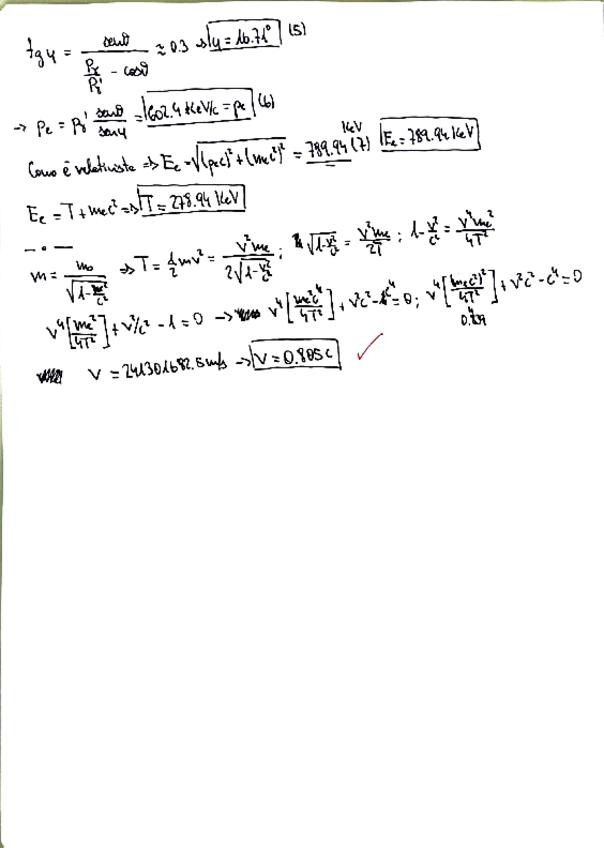 tg φ = senθ / (Pγ/Pγ' - cosθ) ≈ 0.3 ⇒ φ = 16.71° (5)
→ Pe = Pγ' senθ/senφ = 602.4 KeV/c = Pe (6)
Como é relativista ⇒ Ee = √((pec)² + (mec²)²) = 789.94 KeV (7) Ee = 789.94 KeV
Ee = T + mec² ⇒ T = 278.94 KeV
— • —
m = m0 / √(1 - v²/c²) ⇒ T = 1/2 mv² = v²me / (2√(1 - v²/c²)) ; √(1 - v²/c²) = v²me/2T ; 1 - v²/c² = v⁴me²/4T²
v⁴[me²/4T²] + v²/c² - 1 = 0 → v⁴[me²c⁴/4T²] + v²c² - c⁴ = 0 ; v⁴[(mec²)²/4T²] + v²c² - c⁴ = 0
V = 241301682.5 m/s → V = 0.805 c